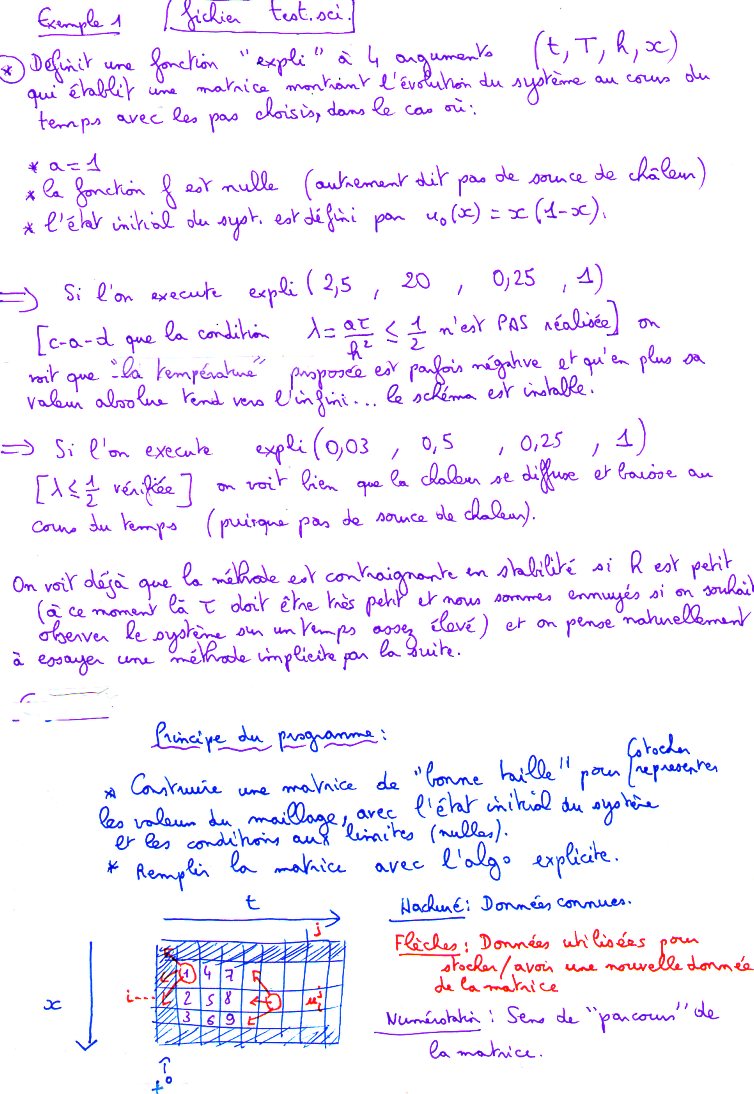 Exemple 1 fichier test.sci.
* Définit une fonction "expli" à 4 arguments (t, T, h, x)
qui établit une matrice montrant l'évolution du système au cours du
temps avec les pas choisis, dans le cas où:
* a = 1
* la fonction f est nulle (autrement dit pas de source de châleur)
* l'état initial du syst. est défini par u₀(x) = x(1-x).
⇒ Si l'on execute expli (2,5 , 20 , 0,25 , 1)
[c-a-d que la condition λ = aτ/h² ≤ 1/2 n'est PAS réalisée] on
voit que "la température" proposée est parfois négative et qu'en plus sa
valeur absolue tend vers l'infini... le schéma est instable.
⇒ Si l'on execute expli (0,03 , 0,5 , 0,25 , 1)
[λ ≤ 1/2 vérifiée] on voit bien que la chaleur se diffuse et baisse au
cours du temps (puisque pas de source de chaleur).
On voit déjà que la méthode est contraignante en stabilité si h est petit
(à ce moment là τ doit être très petit et nous sommes ennuyés si on souhait
observer le système sur un temps assez élevé) et on pense naturellement
à essayer une méthode implicite par la suite.
Principe du programme:
* Construire une matrice de "bonne taille" pour stocker/representer
les valeurs du maillage, avec l'état initial du système
et les conditions aux limites (nulles).
* Remplir la matrice avec l'algo explicite.
t
j
x
i
1 4 7
2 5 8
3 6 9
uᵢʲ
t⁰
Hachuré: Données connues.
Flèches: Données utilisées pour
stocker/avoir une nouvelle donnée
de la matrice
Numérotation: Sens de "parcours" de
la matrice.